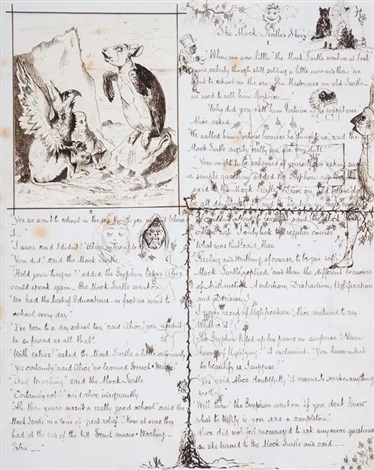 The Mock Turtle's Story
1.
"When we were little" the Mock Turtle went on at last
more calmly though still sobbing a little now and then "we
went to school in the sea. The Master was an old Turtle
we used to call him Tortoise
"Why did you call him Tortoise if he wasn't one"
Alice asked.
We called him Tortoise because he taught us" said the
Mock Turtle angrily really you are very dull
You ought to be ashamed of yourself for asking such
a simple question" added the Gryphon
said to the Mock Turtle "Drive on old fellow don't
be all day
2
Yes we went to school in the sea though you mayn't believe
it —
I never said I didn't" Alice
You did," said the Mock Turtle.
"Hold your tongue"! added the Gryphon before Alice
could speak again. The Mock Turtle went on.
"We had the best of Educations — in fact we went to
school every day"
"I've been to a day school too," said Alice, "you needn't
be so proud as all that."
"With extras" asked the Mock Turtle a little anxiously
"Yes certainly" said Alice "we learned French & Music
"And washing"? said the Mock Turtle
"Certainly not"! said Alice indignantly
"Ah then yours wasn't a really good school" said the
Mock Turtle in a tone of great relief. "Now at ours they
had at the end of the bill French music & Washing —
Extra —
"I only took the regular course
What was that? said Alice
Reeling and Writhing of course to begin with
Mock Turtle replied, "and then the different branches
of Arithmetic — Ambition, Distraction, Uglification
and Derision.
I never heard of Uglification," Alice ventured to say.
What is it?
The Gryphon lifted up both its paws in surprise "Never
heard of Uglifying"! it exclaimed. "You know what
to beautify is I suppose
"Yes" said Alice doubtfully "it means to make anything
prettier
Well then" the Gryphon went on "if you don't know
what to Uglify is you are a simpleton"
Alice did not feel encouraged to ask any more questions
so she turned to the Mock Turtle and said —